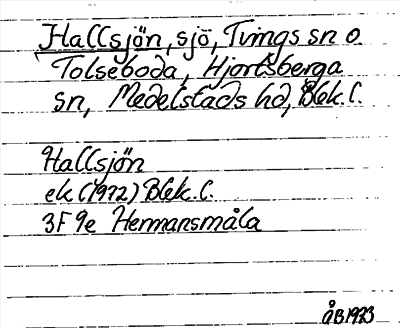 Hallsjön, sjö, Tvings sn o.
Tolseboda, Hjortsberga
sn, Medelstads hd, Blek. l.
Hallsjön
ek (1972) Blek. l.
3F 9e Hermansmåla
ÅB 1973